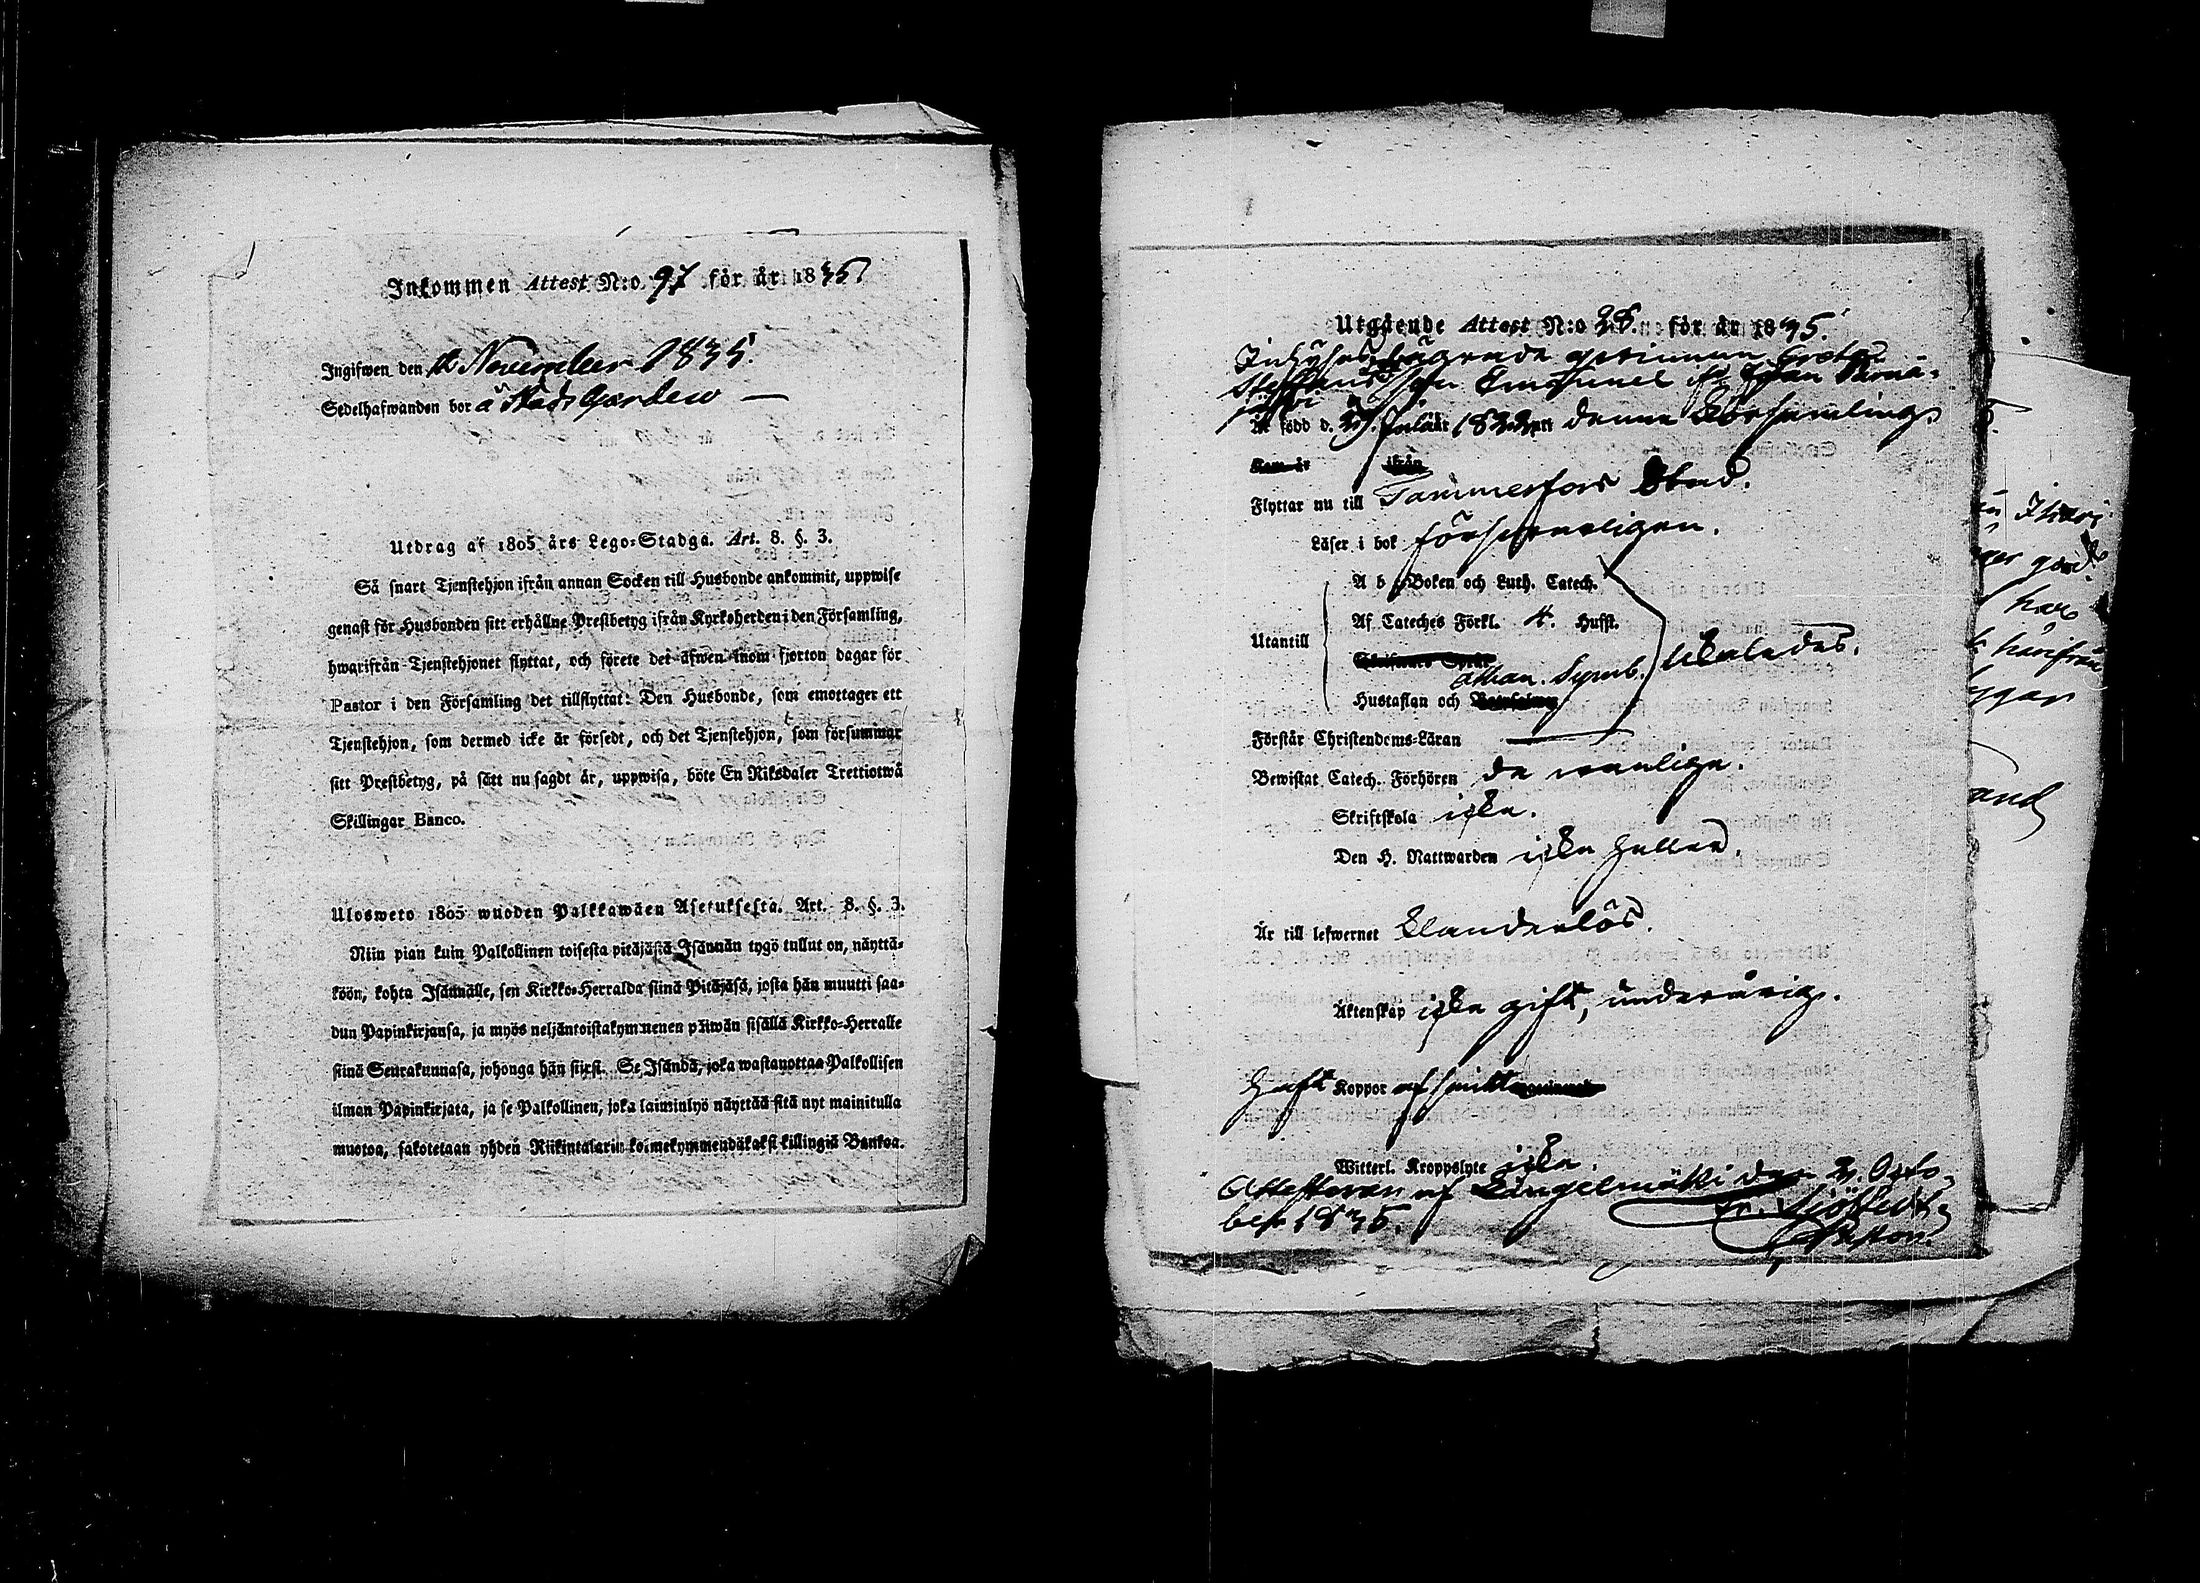 Inkommen Attest N:o 97 för år 1835
Ingifwen den November 1835.
Sedelhafwanden bor å Stads Gården
Utdrag af 1805 års Lego-Stadga. Art. 8. §. 3.
Så snart Tjenstehjon ifrån annan Socken till Husbonde ankommit, uppwise
genast för Husbonden sitt erhållne Prestbetyg ifrån Kyrkoherden i den Församling,
hwarifrån Tjenstehjonet flyttat, och förete det äfwen inom fjorton dagar för
Pastor i den Församling det tillflyttat: Den Husbonde, som emottager ett
Tjenstehjon, som dermed icke är försedt, och det Tjenstehjon, som försummar
sitt Prestbetyg, på sätt nu sagdt är, uppwisa, böte En Riksdaler Trettiotwå
Skillingar Banco.
Ulosweto 1805 wuoden Palkkawäen Asetuksesta. Art. 8. §. 3.
Niin pian kuin Palkollinen toisesta pitäjästä Isännän tygö tullut on, näyttä-
köön, kohta Isännälle, sen Kirkko-Herralda siinä Pitäjäsä, josta hän muutti saa-
dun Papinkirjansa, ja myös neljäntoistakymmenen päiwän sisällä Kirkko-Herralle
siinä Seurakunnasa, johonga hän siirsi. Se Isändä, joka wastanottaa Palkollisen
ilman Papinkirjata, ja se Palkollinen, joka laiminlyö näyttää sitä nyt mainitulla
muotoa, sakotetaan yhden Riikintalarin kolmekymmendäkaksi killingiä Bankoa.
Utgående Attest N:o 28. för år 1835.
Inhyses Greta
son Emanuel Johan
Är född d. 27 Julii år 1822 uti denna Församling.
Kom år ifrån
Flyttar nu till Tammerfors Stad.
Läser i bok försvarligen.
A b c Boken och Luth. Catech.
Af Cateches Förkl. 4. Hufst.
Utantill
Athan. Symb. likaledes.
Hustaflan och
Förstår Christendoms-Läran
Bewistat Catech. Förhören de vanliga.
Skriftskola icke.
Den H. Nattwarden icke heller.
Är till lefwernet klanderlös.
Äktenskap icke gift, underårig.
Haft Koppor af smitta
Witterl. Kroppslyte icke.
Attesterar af Längelmäki den 2. Octo-
ber 1835.
Pastor.